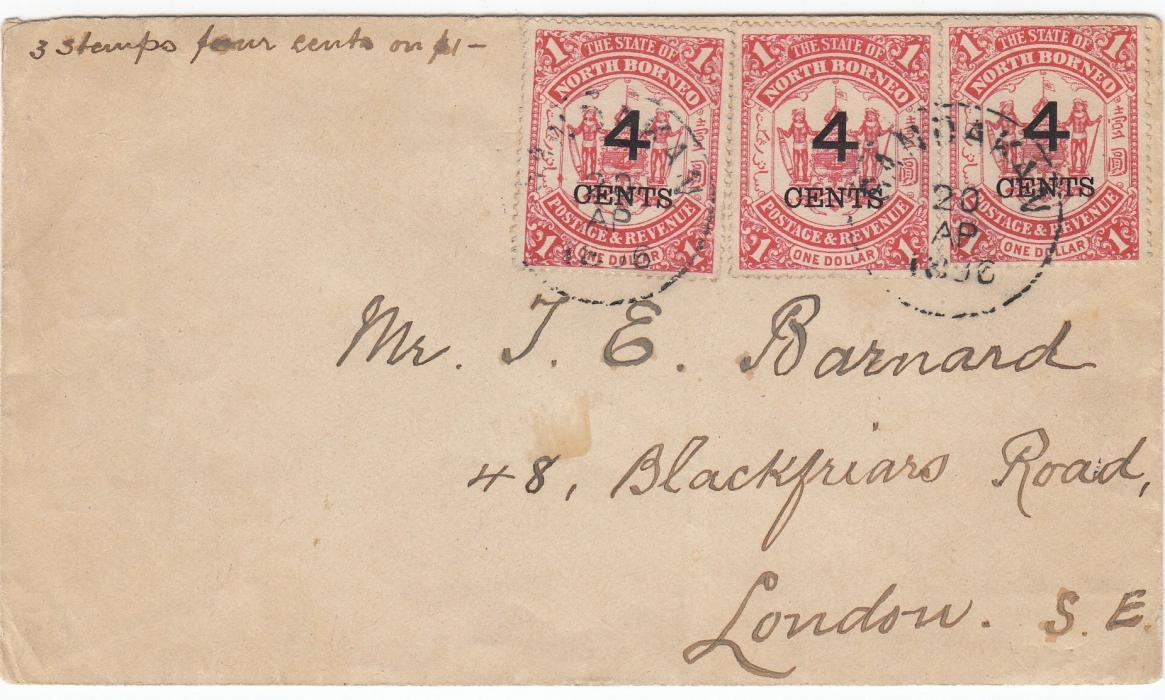 3 stamps four cents on $1-
1 THE STATE OF 1
NORTH BORNEO
4
CENTS
POSTAGE & REVENUE
1 ONE DOLLAR 1
1 THE STATE OF 1
NORTH BORNEO
4
CENTS
POSTAGE & REVENUE
1 ONE DOLLAR 1
1 THE STATE OF 1
NORTH BORNEO
4
CENTS
POSTAGE & REVENUE
1 ONE DOLLAR 1
SANDAKAN
AP
SANDAKAN
20
AP
1896
Mr. T. E. Barnard
48, Blackfriars Road,
London. S. E.